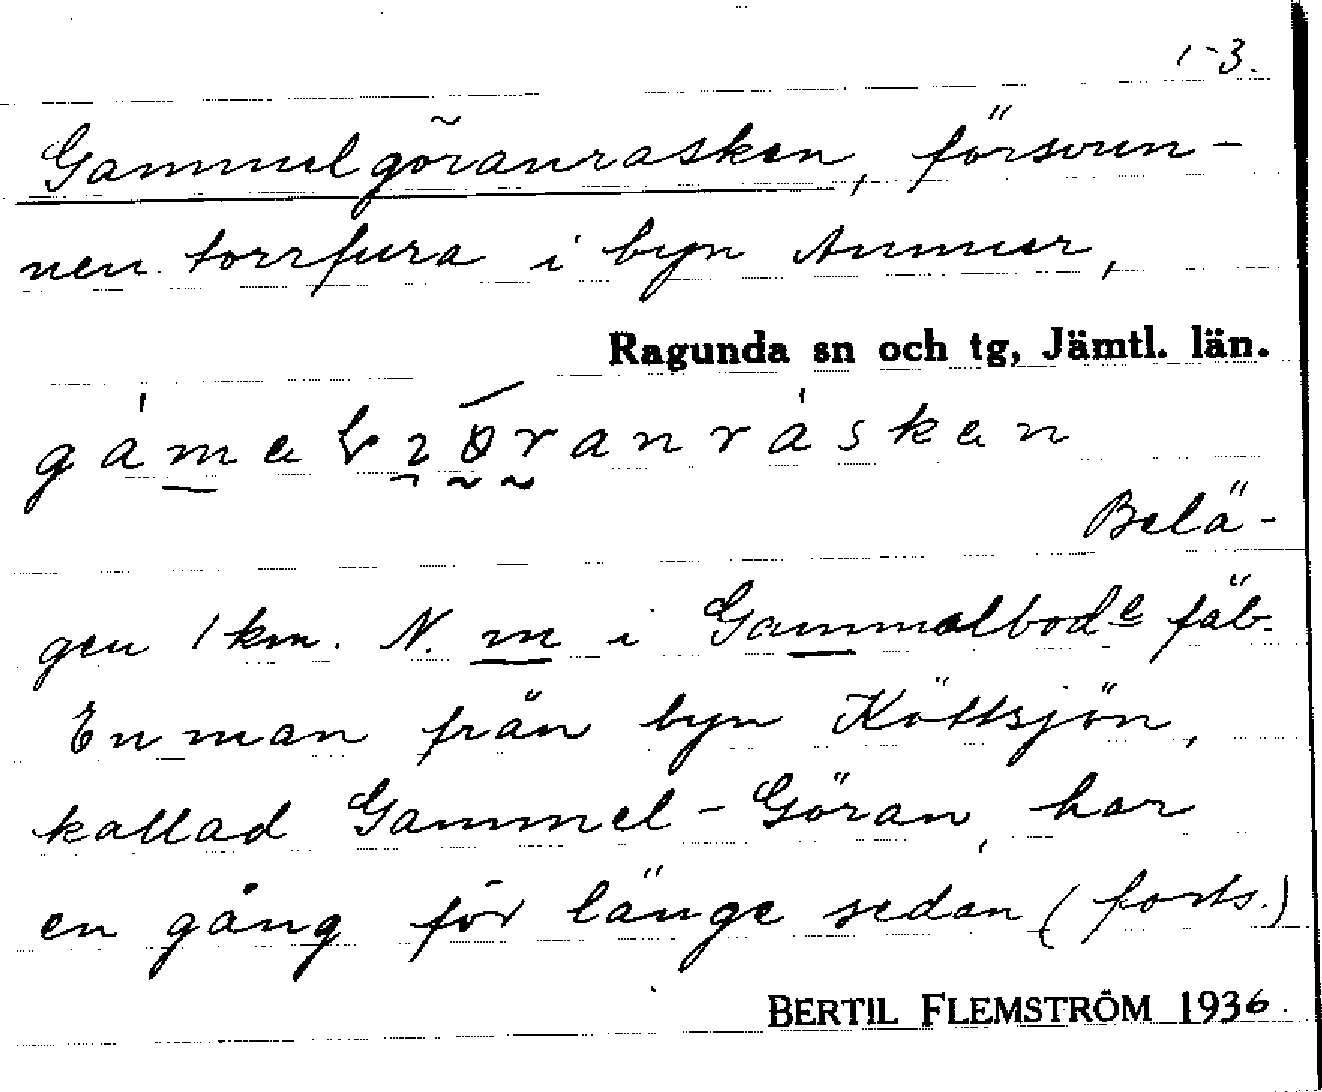 1-3.
Gammelgöranrasken, försvun-
nen torrfura i byn Ammer,
Ragunda sn och tg, Jämtl. län.
Belä-
gen 1 km. N. m i Gammalbodᵉ fäb.
En man från byn Köttsjön,
kallad Gammel-Göran, har
en gång för länge sedan (forts.)
BERTIL FLEMSTRÖM 1936.